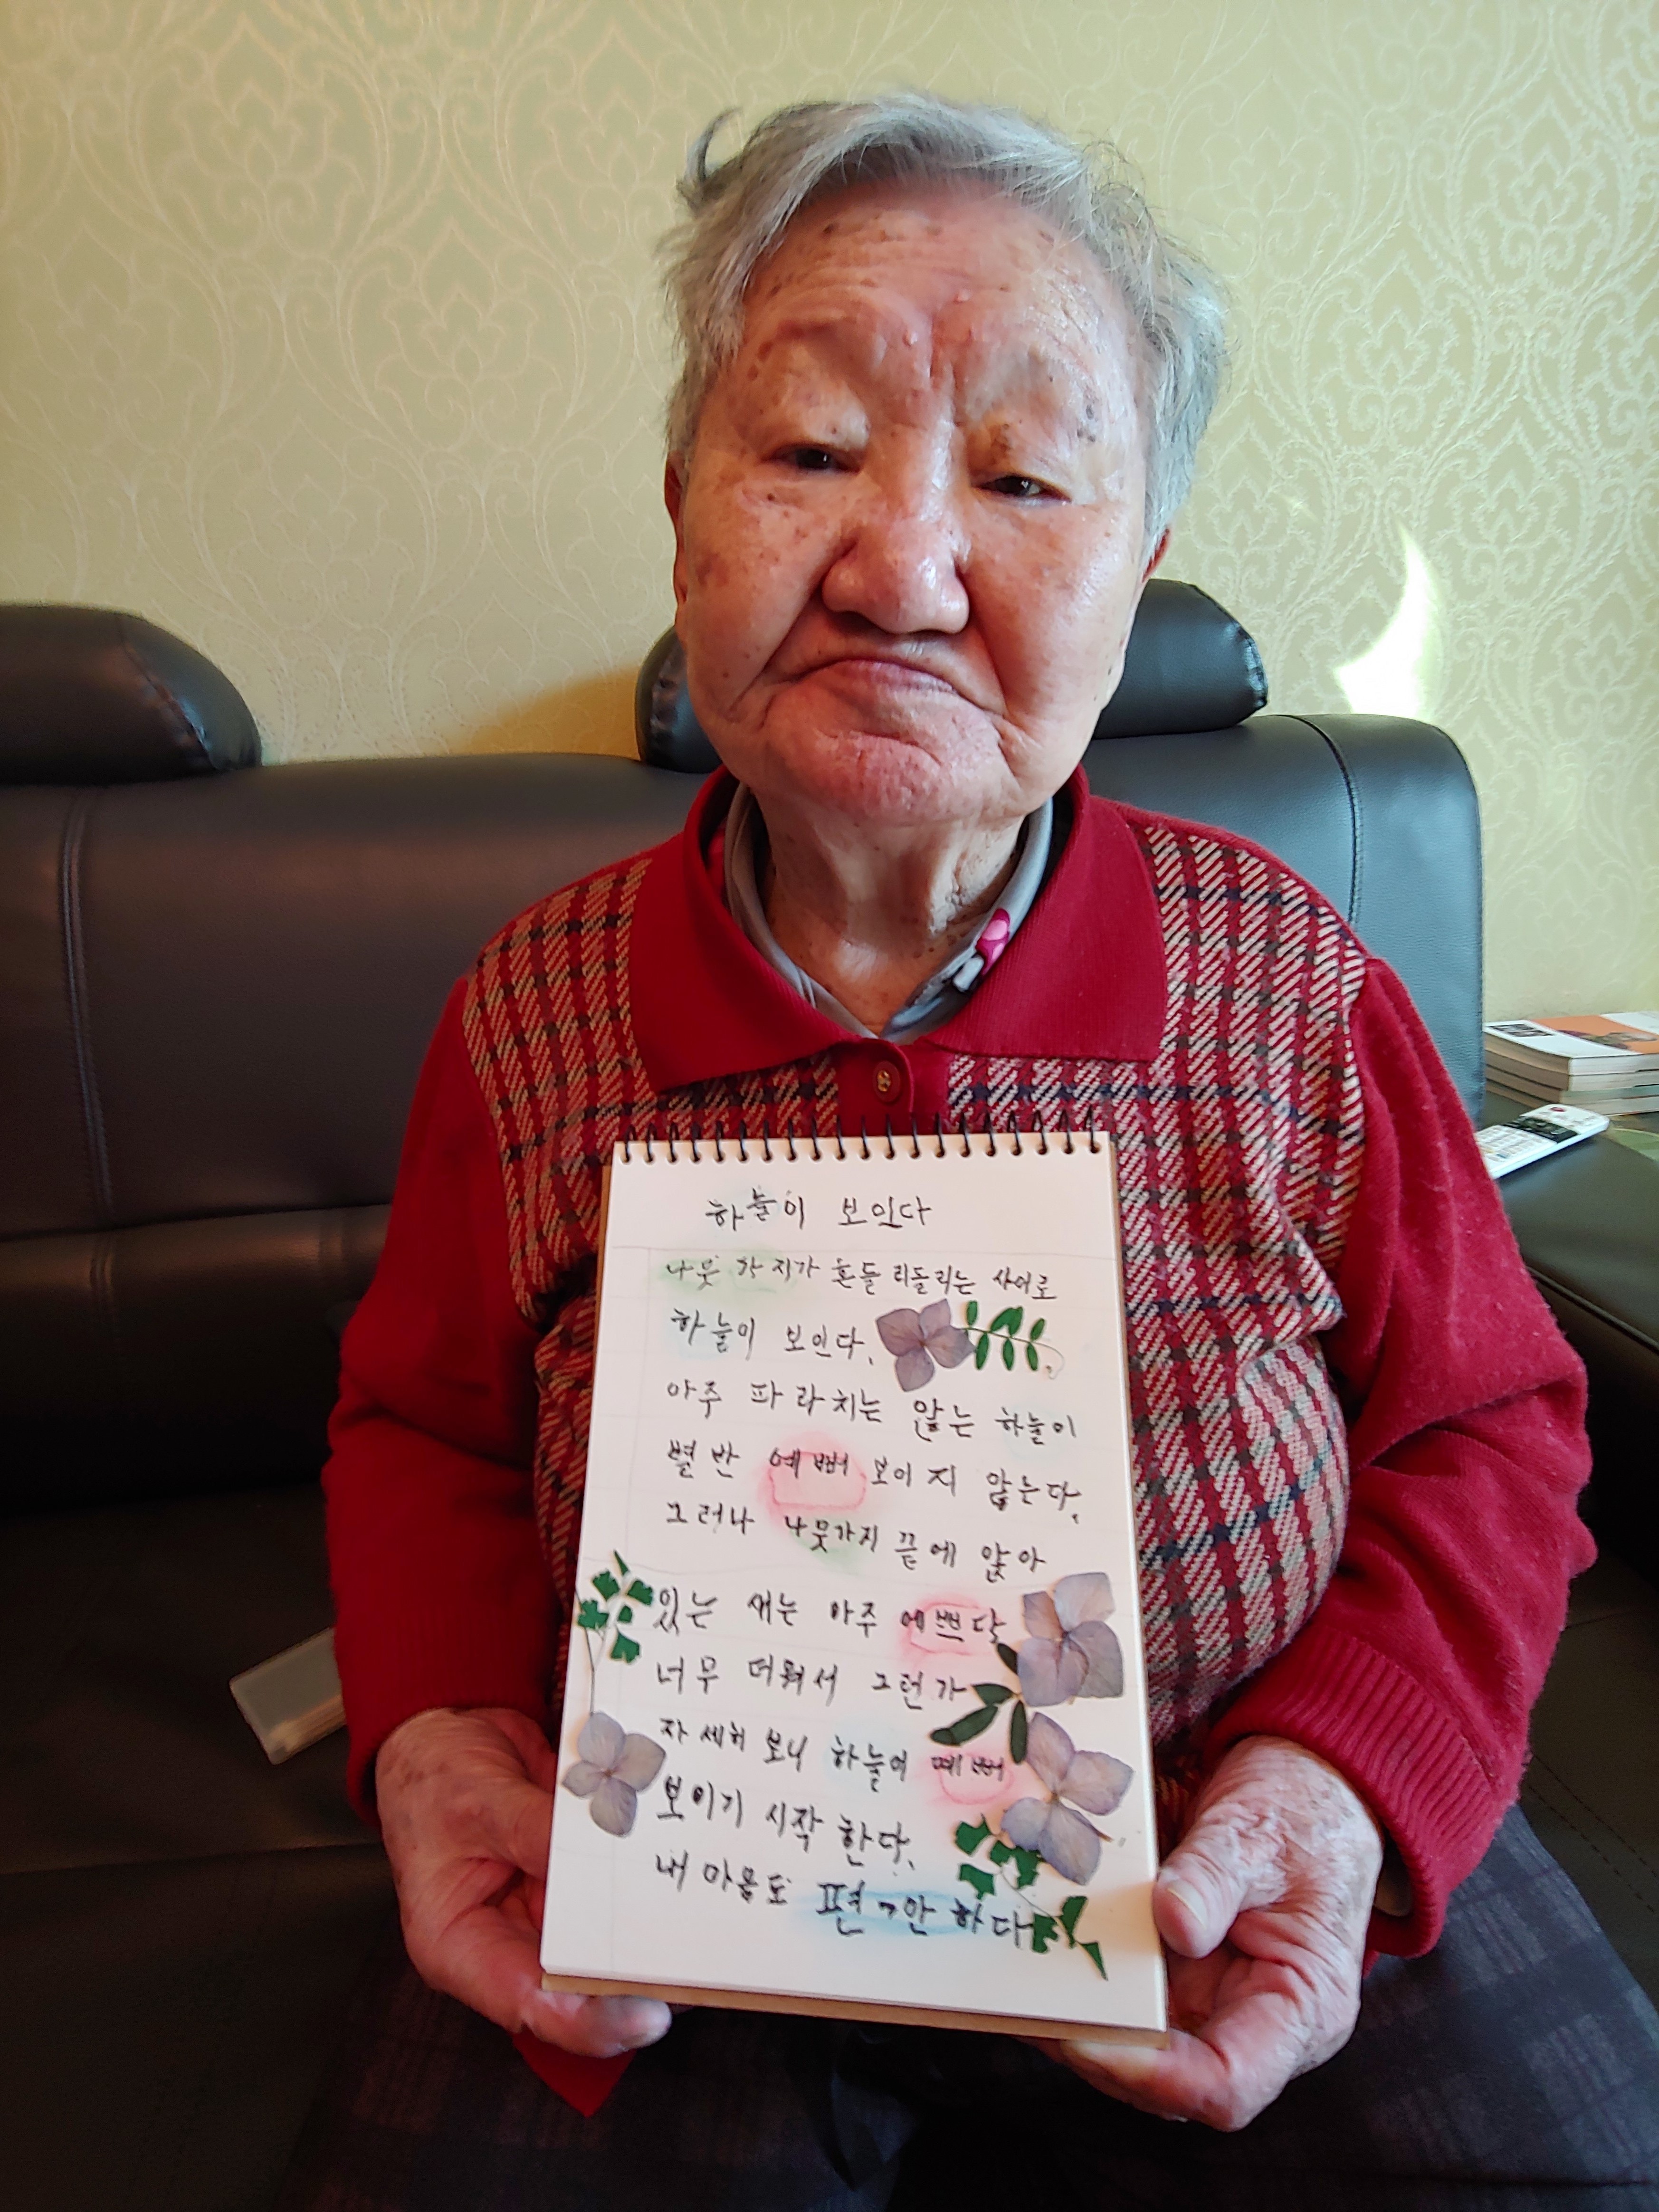 하늘이 보인다
나뭇가지가 흔들리들리는 사이로
하늘이 보인다.
아주 파라치는 않는 하늘이
별반 예뻐 보이지 않는다.
그러나 나뭇가지 끝에 앉아
있는 새는 아주 예쁘다
너무 더워서 그런가
자세히 보니 하늘이 예뻐
보이기 시작 한다.
내 마음도 편안하다